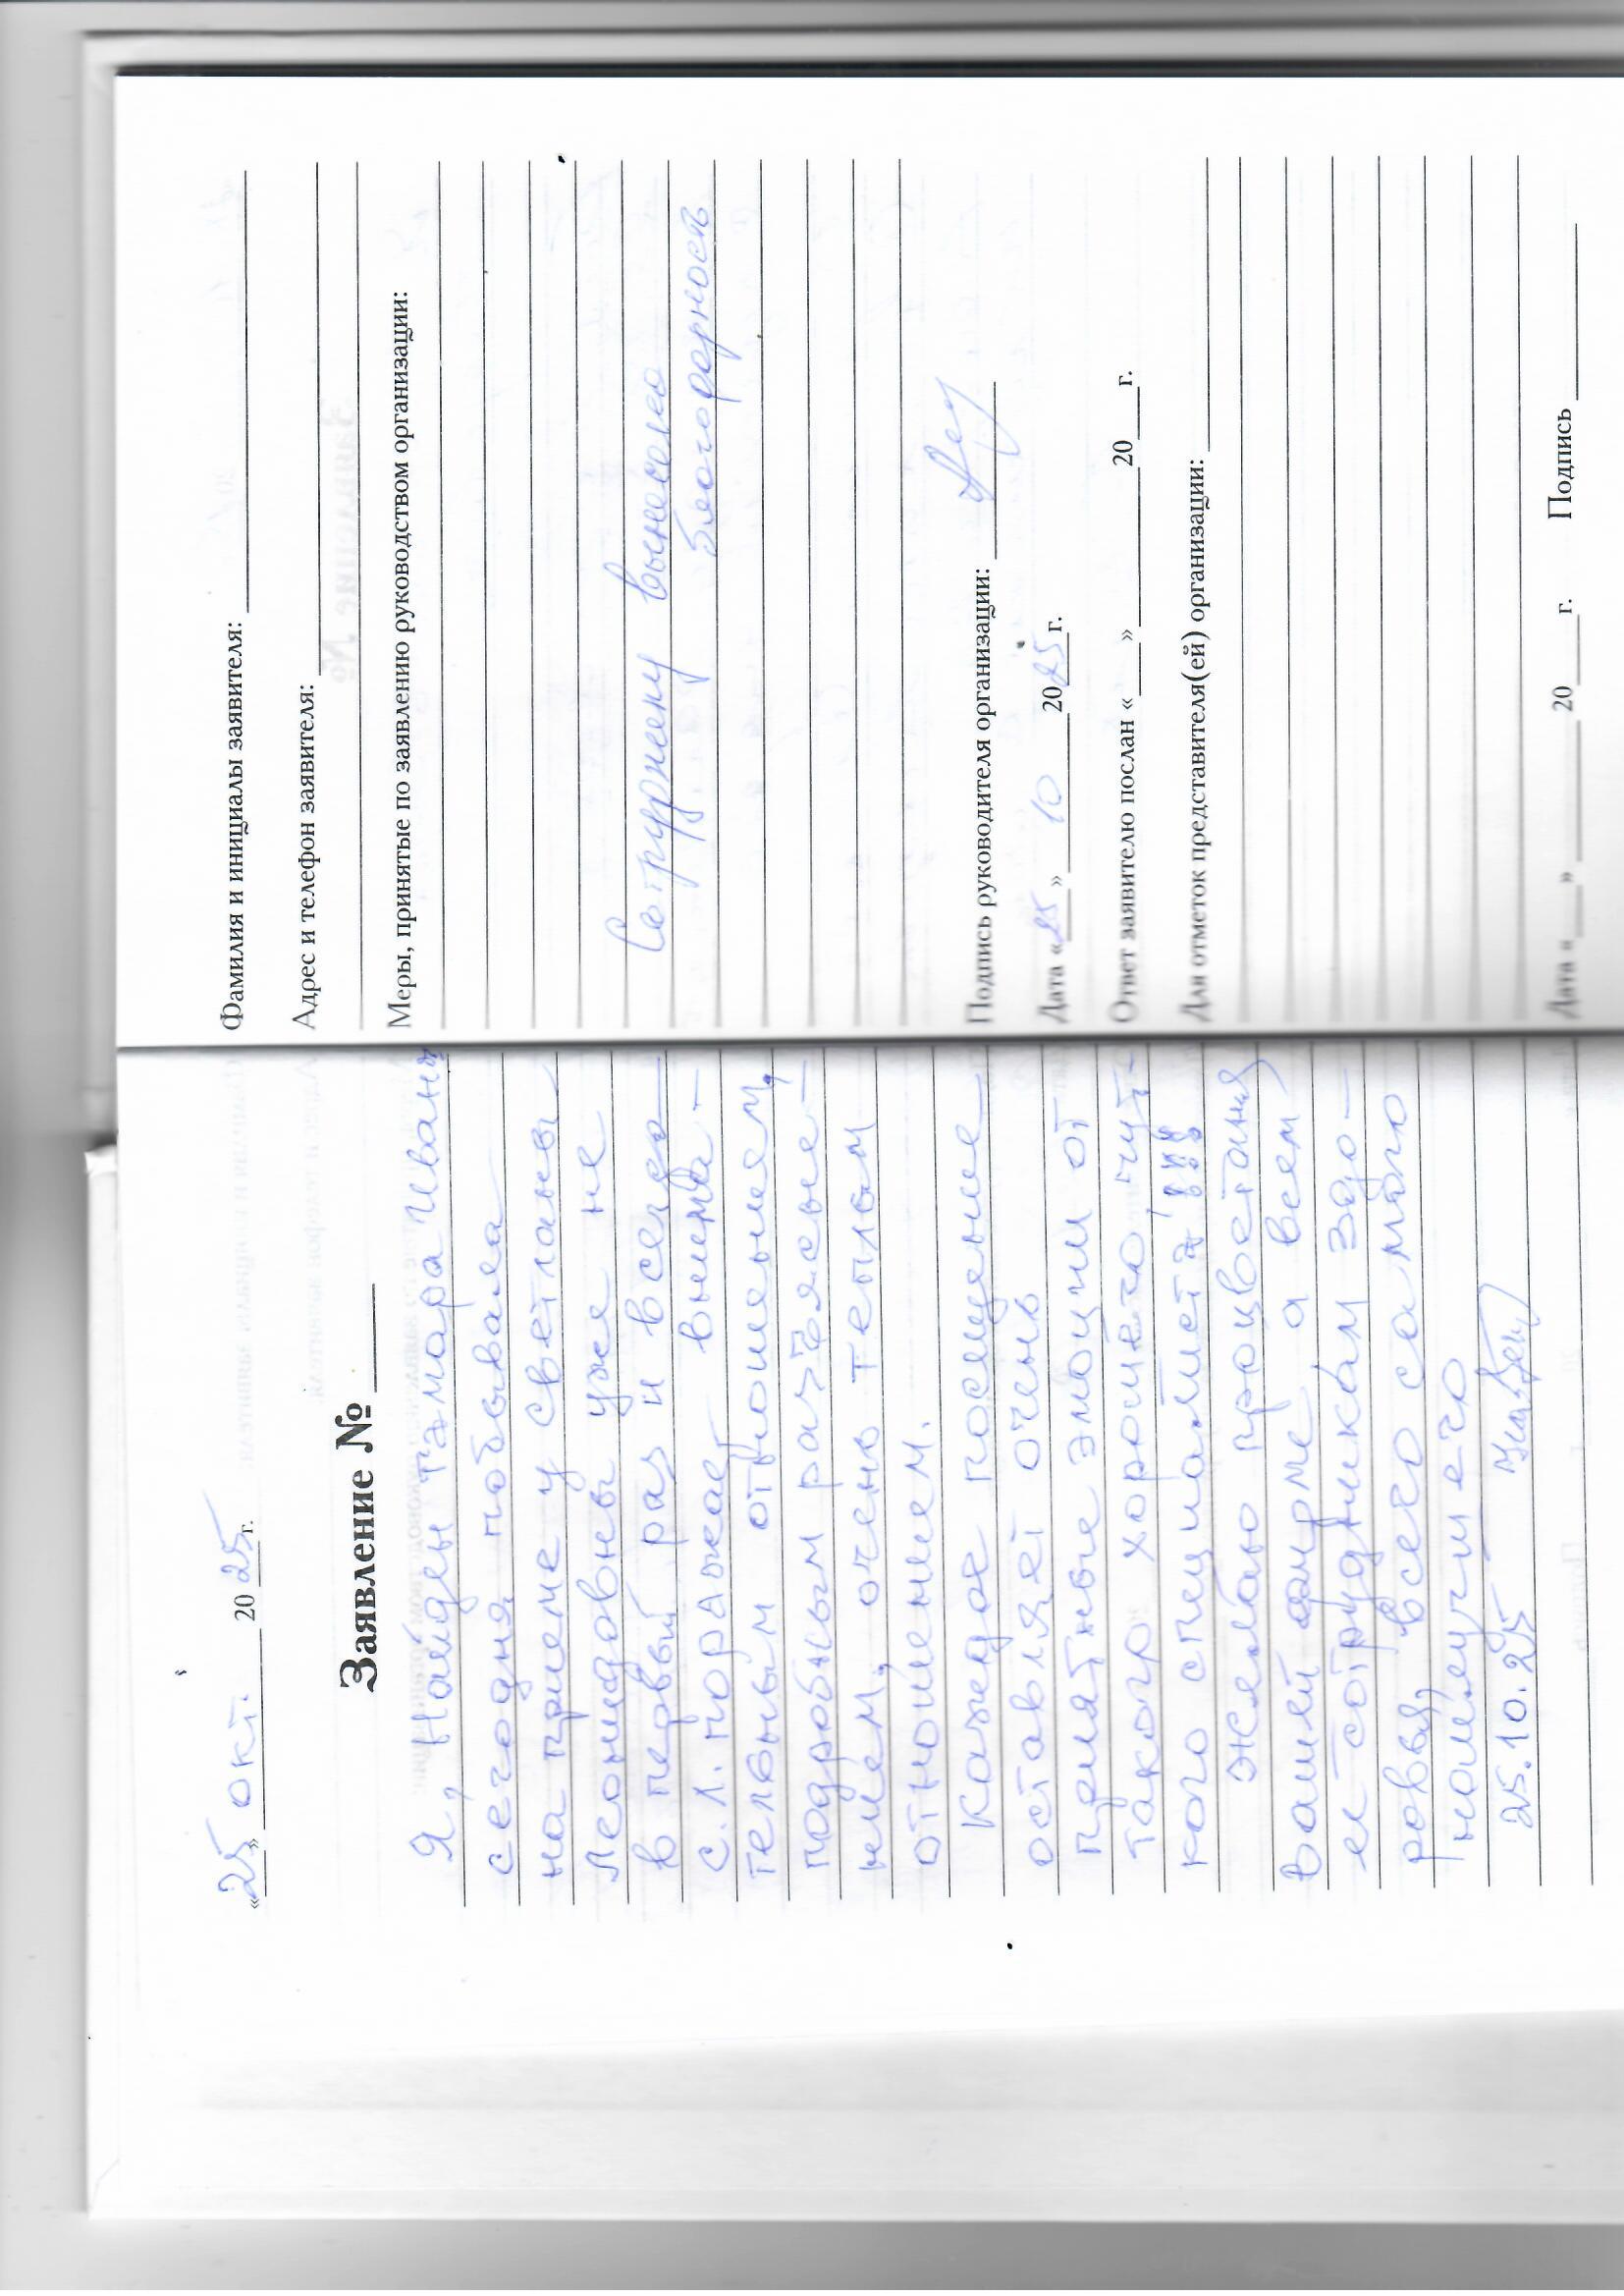 «25» окт. 2025 г.
Заявление № ____
Я, Найден Тамара Ивани
сегодня побывала
на приеме у Светланы
Леонидовны уже не
в первый раз и всегда
С.Л. поражает внима-
тельным отношением,
подробным разъясне-
нием, очень теплым
отношением.
Каждое посещение
оставляет очень
приятные эмоции от
такого хорошего, чут-
кого специалиста!!!
Желаю процветания
вашей фирме, а всем
сотрудникам здо-
ровья, всего самого
наилучшего
25.10.25
Фамилия и инициалы заявителя:
Адрес и телефон заявителя:
Меры, принятые по заявлению руководством организации:
Сотруднику вынесена
благодарность
Подпись руководителя организации:
Дата «25» 10 2025 г.
Ответ заявителю послан «___» ______ 20__ г.
Для отметок представителя(ей) организации:
Дата «___» ______ 20___ г. Подпись ______